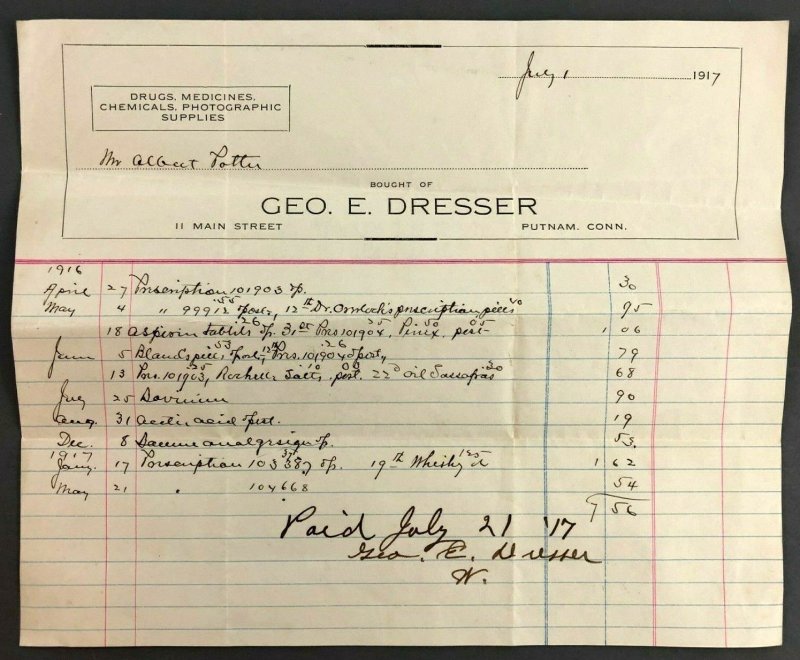 July 1 1917
DRUGS, MEDICINES,
CHEMICALS, PHOTOGRAPHIC
SUPPLIES
Mr Albert Potter
BOUGHT OF
GEO. E. DRESSER
11 MAIN STREET PUTNAM. CONN.
1916
April 27 Prescription 101903 30
May 4 " 99912 .55 12th Dr. prescription pills 40 95
18 Aspirin tablets .26 31st Pres 101904 .25 Pinex .50 .05 1 06
June 5 Bland's pills .53 12th Pres. 101904 .26 79
13 Pres. 101903 .25 Rochelle Salts .10 22d Oil Sassafras 68
July 25 90
Aug. 31 Acetic acid 19
Dec. 8 53
1917
Jany. 17 Prescription 103387 .37 19th Whisky 1.25 1 62
May 21 " 104668 54
7 56
Paid July 21 '17
Geo. E. Dresser
W.